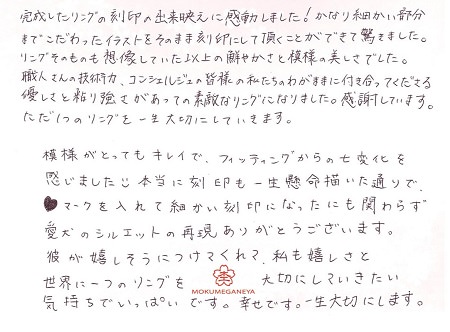 完成したリングの刻印の出来映えに感動しました!かなり細かい部分
までこだわったイラストをそのまま刻印にして頂くことができて驚きました。
リングそのものも想像していた以上の鮮やかさと模様の美しさでした。
職人さんの技術力、コンシェルジュの皆様の私たちのわがままに付き合ってくださる
優しさと粘り強さがあっての素敵なリングになりました。感謝しています。
ただ1つのリングを一生大切にしていきます。
模様がとってもキレイで、フィッティングからの七変化を
感じました 本当に刻印も一生懸命描いた通りで、
♥マークを入れて細かい刻印になったにも関わらず
愛犬のシルエットの再現ありがとうございます。
彼が嬉しそうにつけてくれて、私も嬉しさと
世界に一つのリングを 大切にしていきたい
MOKUMEGANEYA
気持ちでいっぱいです。幸せです。一生大切にします。